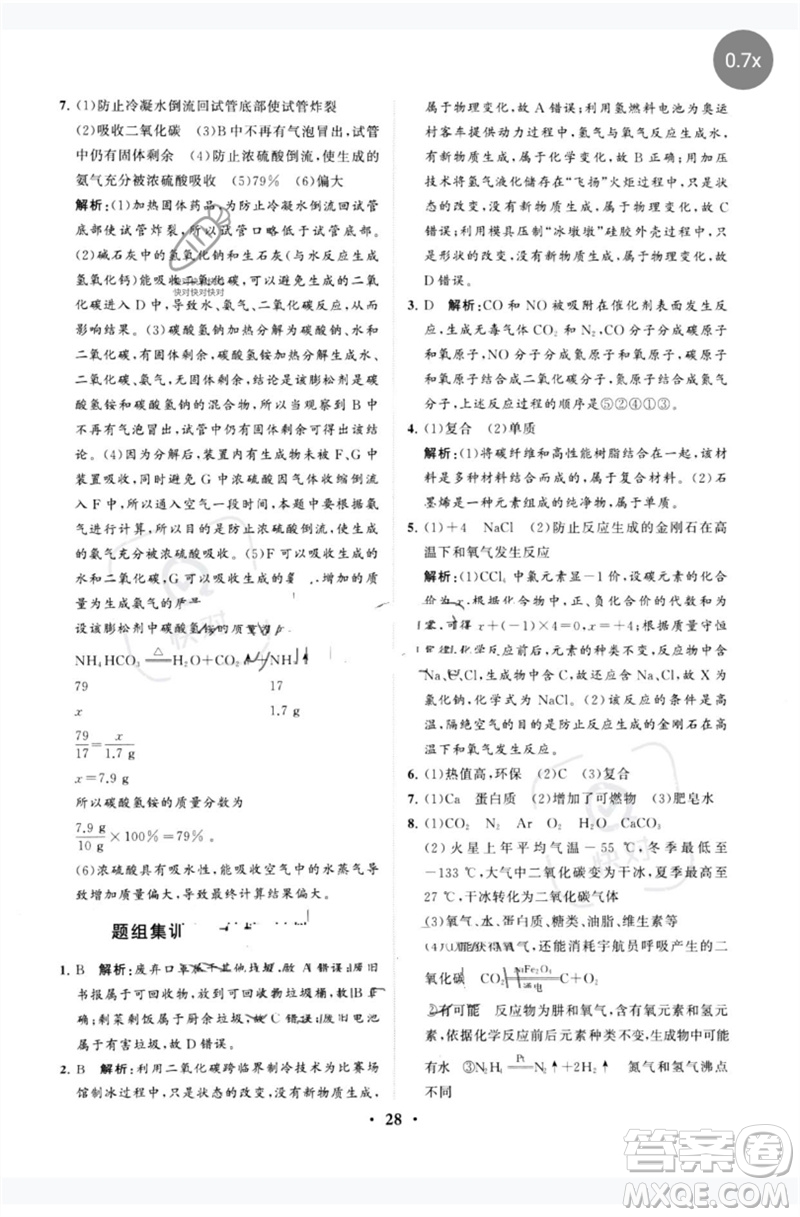 0.7x
7. (1)防止冷凝水倒流回试管底部使试管炸裂
(2)吸收二氧化碳 (3)B中不再有气泡冒出,试管
中仍有固体剩余 (4)防止浓硫酸倒流,使生成的
氨气充分被浓硫酸吸收 (5)79% (6)偏大
解析:(1)加热固体药品,为防止冷凝水倒流回试管
底部使试管炸裂,所以试管口略低于试管底部。
(2)碱石灰中的氢氧化钠和生石灰(与水反应生成
氢氧化钙)能吸收二氧化碳,所以避免生成的二氧
化碳进入D中,导致水、二氧化碳反应生成碳酸,从
而影响结果。(3)碳酸氢钠加热分解为碳酸钠、水和
二氧化碳,有固体剩余,碳酸氢铵加热生成水、二氧
化碳、氨气,无固体剩余,结论是该膨松剂是碳
酸氢铵和碳酸氢钠的混合物,所以当观察到B中
不再有气泡冒出,试管中仍有固体剩余时,可得此
结论。(4)因为分解后,装置里仍有氨气残余,且不
再加热会导致G中浓硫酸因气体被吸收倒流回
装置F、G中间的导管,甚至回流到F中,使实验失
败,所以通入空气一段时间,本题中要根据氨
气进行计算,所以要防止浓硫酸倒流,使生成
的氨气充分被浓硫酸吸收。(5)F可以吸收水蒸气
和二氧化碳,G可以吸收生成的
量为生成氨气的质
设该膨松剂中碳酸氢铵的质量
NH₄HCO₃ =△= H₂O+CO₂↑+NH
79 17
x 1.7 g
79/17=x/1.7 g
x=7.9 g
所以碳酸氢铵的质量分数为
7.9 g/10 g×100%=79%。
(6)浓硫酸具有吸水性,能吸收空气中的水蒸气从
而增重,导致最终计算结果偏大。
题组集训
1. B 解析:废弃口罩属于其他垃圾,故A错误;废旧
书报属于可回收物,放可回收物垃圾桶,故B正
确;剩菜剩饭属于厨余垃圾,故C错误;废旧电池
属于有害垃圾,故D错误。
2. B 解析:利用二氧化碳跨临界制冷技术为比赛场
馆制冰过程中,只是状态的改变,没有新物质生成,
属于物理变化,故A错误;利用氢燃料电池为奥运
村客车提供动力过程中,氢气与氧气反应生成水,
有新物质生成,属于化学变化,故B正确;用加压
技术将氢气液化储存在“飞扬”火炬过程中,只是
状态的改变,没有新物质生成,属于物理变化,故C
错误;利用模具压制“冰墩墩”硅胶外壳过程中,只
是形状的改变,没有新物质生成,属于物理变化,故
D错误。
3. D 解析:CO和NO被吸附在催化剂表面发生反
应,生成无毒气体CO₂和N₂,CO分子分成碳原子
和氧原子,NO分子分成氮原子和氧原子,碳原子
和氧原子结合成二氧化碳分子,氮原子结合成氮气
分子,上述反应过程的顺序是⑤②④①③。
4. (1)复合 (2)单质
解析:(1)将碳纤维和高性能树脂结合在一起,该材料
是多种材料结合而成,故属于复合材料。(2)石
墨烯是一种元素组成的纯净物,属于单质。
5. (1)+4 NaCl (2)防止反应生成的金刚石在高
温下和氧气发生反应
解析:(1)CCl₄中氯元素显-1价,设碳元素的化合
价为x,根据化合物中,正、负化合价的代数和为
可得x+(-1)×4=0,x=+4;根据质量守恒
反应前后,元素的种类不变,反应物中含
Na、C、Cl,生成物中含C,故还应含Na、Cl,故X为
氯化钠,化学式为NaCl。(2)该反应的条件是高
温,隔绝空气的目的是防止反应生成的金刚石在高
温下和氧气发生反应。
6. (1)热值高,环保 (2)C (3)复合
7. (1)Ca 蛋白质 (2)增加了可燃物 (3)肥皂水
8. (1)CO₂ N₂ Ar O₂ H₂O CaCO₃
(2)火星上年平均气温-55 ℃,冬季最低
-133 ℃,大气中二氧化碳为干冰,夏季最高
27 ℃,干冰转化为二氧化碳气体
(3)氧气、水、蛋白质、糖类、油脂、维生素
(4)①能获得氧气,还能消耗宇航员呼吸产生的二
氧化碳 CO₂ =NaFe₂O₄/通电= C+O₂
②有可能 反应物为肼和氧气,含有氮元素和氢元
素,依据化学反应前后元素种类不变,生成物中可能
有水 ③N₂H₄ =Pt= N₂↑+2H₂↑ 氮气和氢气沸点
不同
• 28 •
快对
快对
答案圈
MXQE.COM